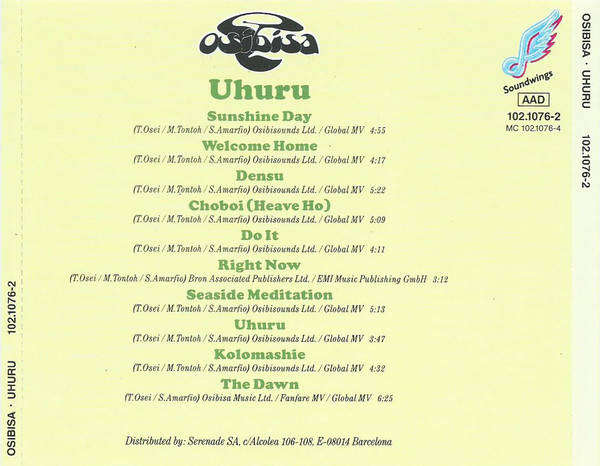 OSIBISA
Uhuru
Sunshine Day
(T.Osei / M.Tontoh / S.Amarfio) Osibisounds Ltd. / Global MV 4:55
Welcome Home
(T.Osei / M.Tontoh / S.Amarfio) Osibisounds Ltd. / Global MV 4:17
Densu
(T.Osei / M.Tontoh / S.Amarfio) Osibisounds Ltd. / Global MV 5:22
Choboi (Heave Ho)
(T.Osei / M.Tontoh / S.Amarfio) Osibisounds Ltd. / Global MV 5:09
Do It
(T.Osei / M.Tontoh / S.Amarfio) Osibisounds Ltd. / Global MV 4:11
Right Now
(T.Osei / M.Tontoh / S.Amarfio) Bron Associated Publishers Ltd. / EMI Music Publishing GmbH 3:12
Seaside Meditation
(T.Osei / M.Tontoh / S.Amarfio) Osibisounds Ltd. / Global MV 5:13
Uhuru
(T.Osei / M.Tontoh / S.Amarfio) Osibisounds Ltd. / Global MV 3:47
Kolomashie
(T.Osei / M.Tontoh / S.Amarfio) Osibisounds Ltd. / Global MV 4:32
The Dawn
(T.Osei / S.Amarfio) Osibisa Music Ltd. / Fanfare MV / Global MV 6:25
Distributed by: Serenade SA, c/Alcolea 106-108, E-08014 Barcelona
Soundwings
AAD
102.1076-2
MC 102.1076-4
OSIBISA · UHURU 102.1076-2
OSIBISA · UHURU 102.1076-2